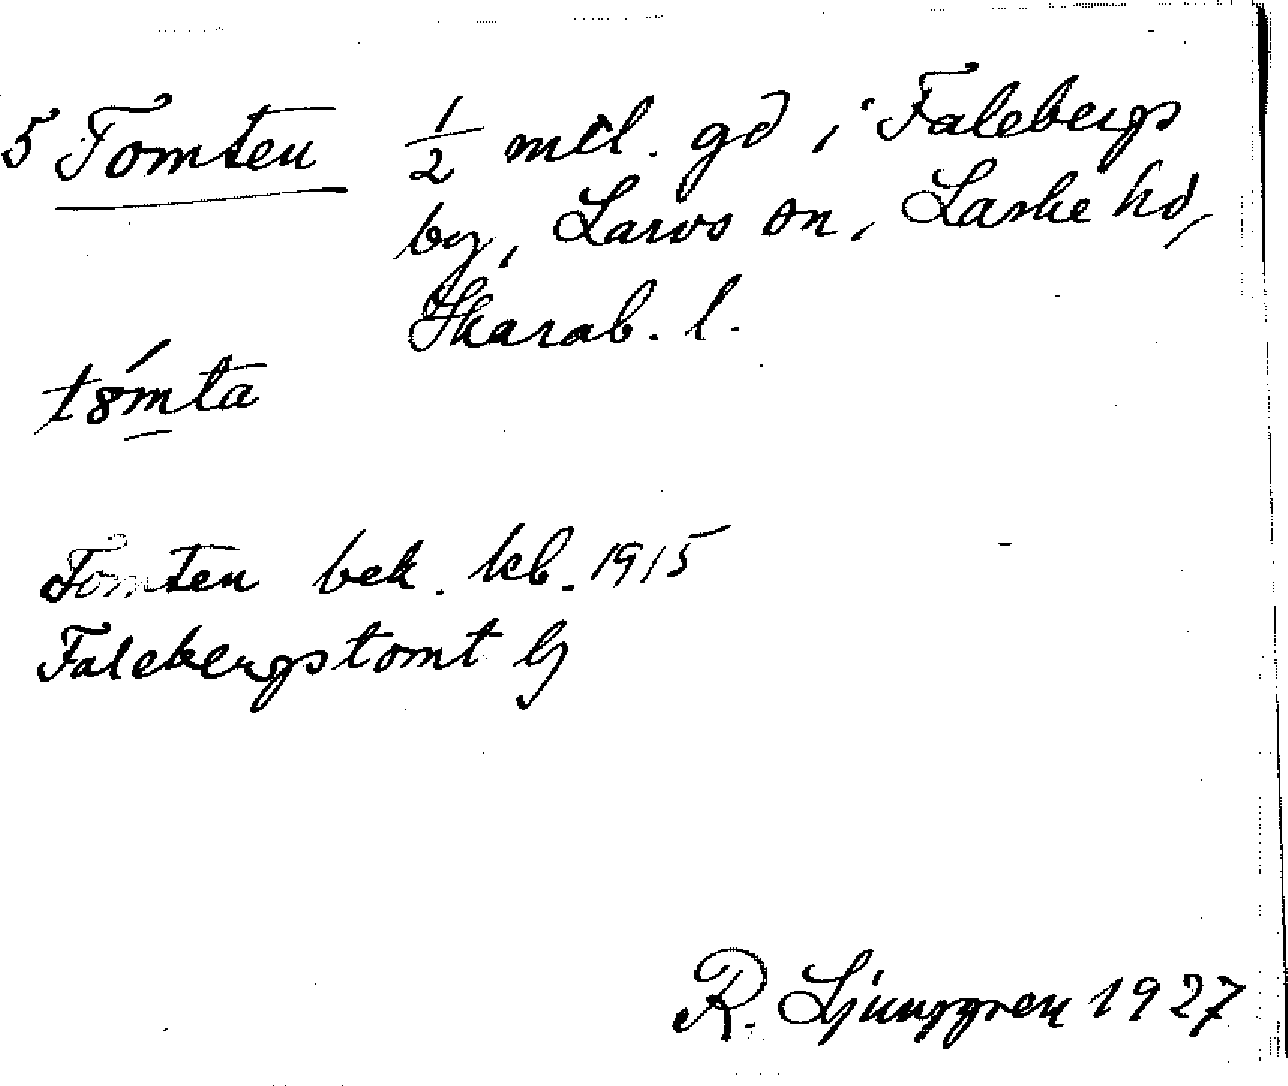 5 Tomten ½ mtl. gd i Falebergs
by, Larvs sn, Laske hd,
Skarab. l.
tømta
Tomten bek. kb. 1915
Falebergstomt
R. Ljunggren 1927